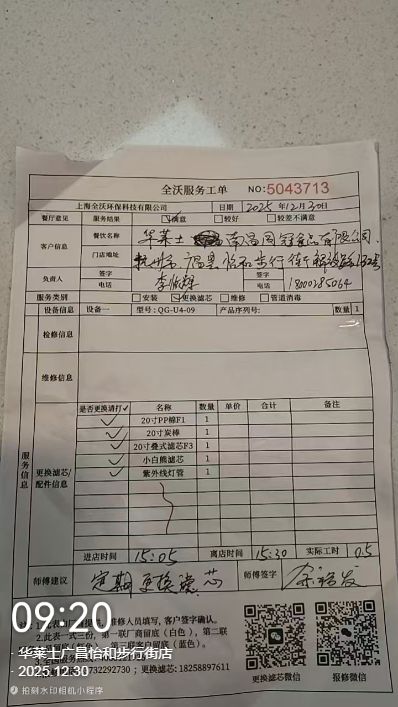 全沃服务工单 NO:5043713
上海全沃环保科技有限公司 日期 2025年12月30日
餐厅意见 服务结果 满意 较好 较差不满意
客户信息 餐饮名称 华莱士 南昌国冠食品有限公司
门店地址 广昌县怡和步行街
负责人 签字 签字
电话 电话
服务类别 安装 更换滤芯 维修 管道消毒
设备信息 设备一 型号:QG-U4-09 产品序列号: 数量 1
检修信息
维修信息
服务信息
更换滤芯/配件信息
是否更换请打✓ 名称 数量 单价 合计 备注
✓ 20寸PP棉F1 1
✓ 20寸炭棒 1
✓ 20寸叠式滤芯F3 1
✓ 小白熊滤芯 1
✓ 紫外线灯管 1
进店时间 15:05 离店时间 15:30 实际工时 0.5
师傅建议 定期更换滤芯 师傅签字
维修人员填写, 客户签字确认。
2.此表一式三份, 第一联厂商留底(白色), 第二联
留底(蓝色)。
更换滤芯: 18258897611
更换滤芯微信 报修微信
09:20
华莱士广昌怡和步行街店
2025.12.30
拍刻水印相机小程序